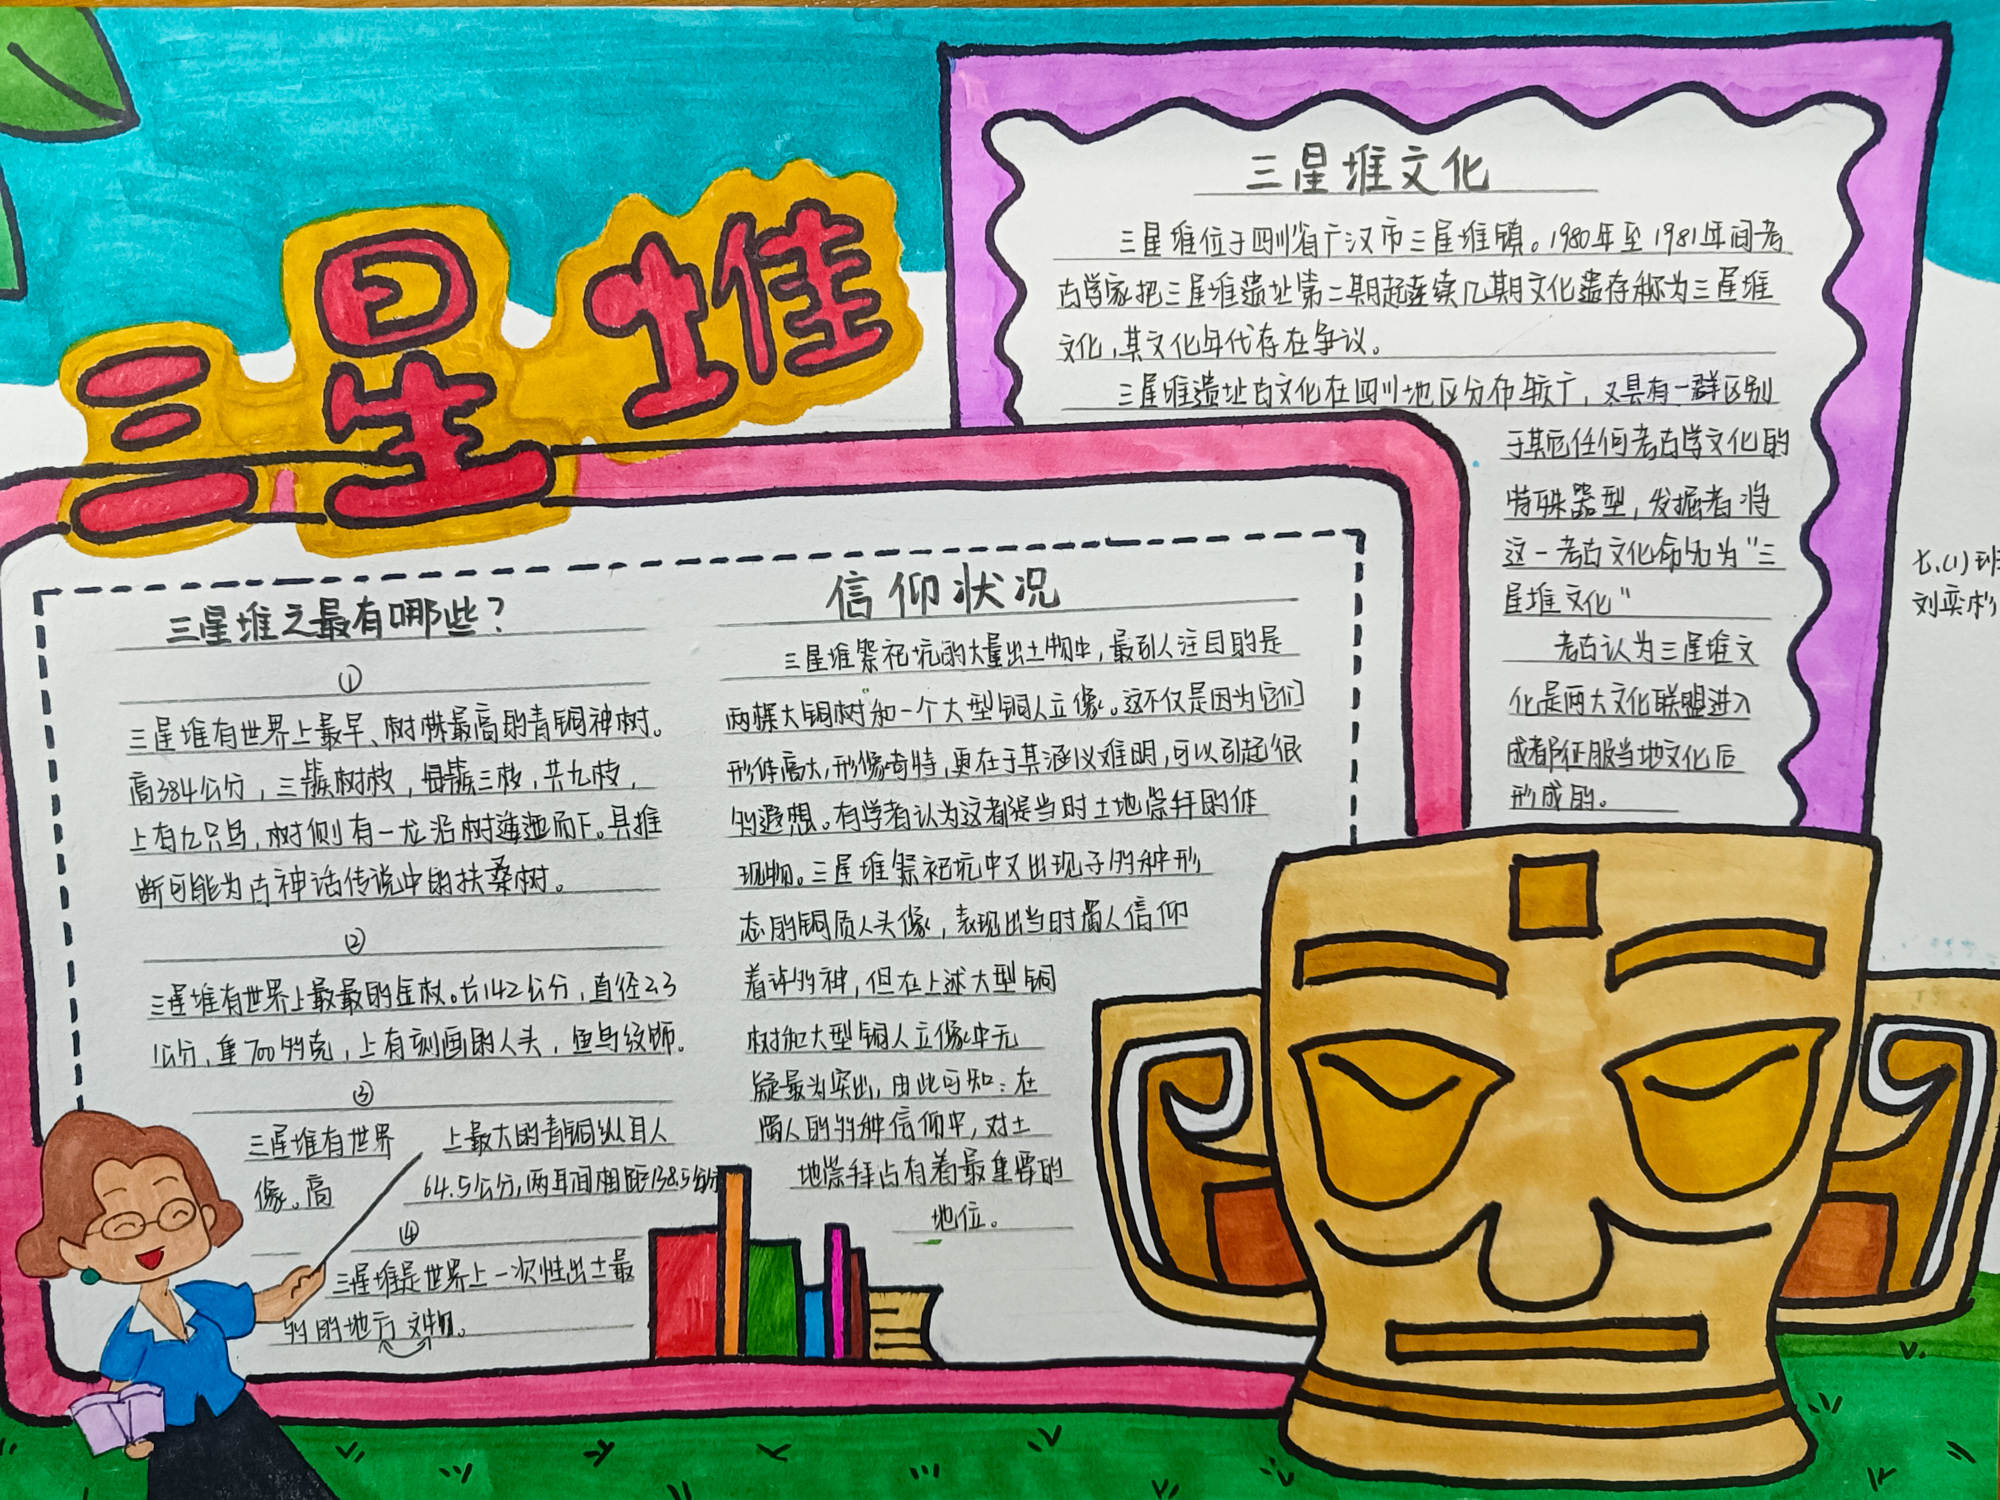 三星堆
三星堆文化
三星堆位于四川省广汉市三星堆镇。1980年至1981年间考
古学家把三星堆遗址第二期起连续几期文化遗存称为三星堆
文化,其文化年代存在争议。
三星堆遗址古文化在四川地区分布较广,又具有一群区别
于其他任何考古学文化的
特殊器型,发掘者将
这一考古文化命名为"三
星堆文化"
考古认为三星堆文
化是两大文化联盟进入
成都征服当地文化后
形成的。
七.(1)班
刘奕杉
三星堆之最有哪些?
①
三星堆有世界上最早、树株最高的青铜神树。
高384公分,三簇树枝,每簇三枝,共九枝,
上有九只鸟,树侧有一龙沿树逶迤而下。具推
断可能为古神话传说中的扶桑树。
②
三星堆有世界上最最的金杖。长142公分,直径2.3
公分,重700多克,上有刻画的人头,鱼鸟纹饰。
③
三星堆有世界上最大的青铜纵目人
像。高64.5公分,两耳间相距138.5公分
④
三星堆是世界上一次性出土最
多的地方文物。
信仰状况
三星堆祭祀坑的大量出土物中,最引人注目的是
两棵大铜树和一个大型铜人立像。这不仅是因为它们
形体高大,形像奇特,更在于其涵义难明,可以引起很
多遐想。有学者认为这都是当时土地崇拜的体
现物。三星堆祭祀坑中又出现了多种形
态的铜质人头像,表现出当时蜀人信仰
着许多神,但在上述大型铜
树和大型铜人立像中无
疑最为突出,由此可知:在
蜀人的多种信仰中,对土
地崇拜占有着最重要的
地位。